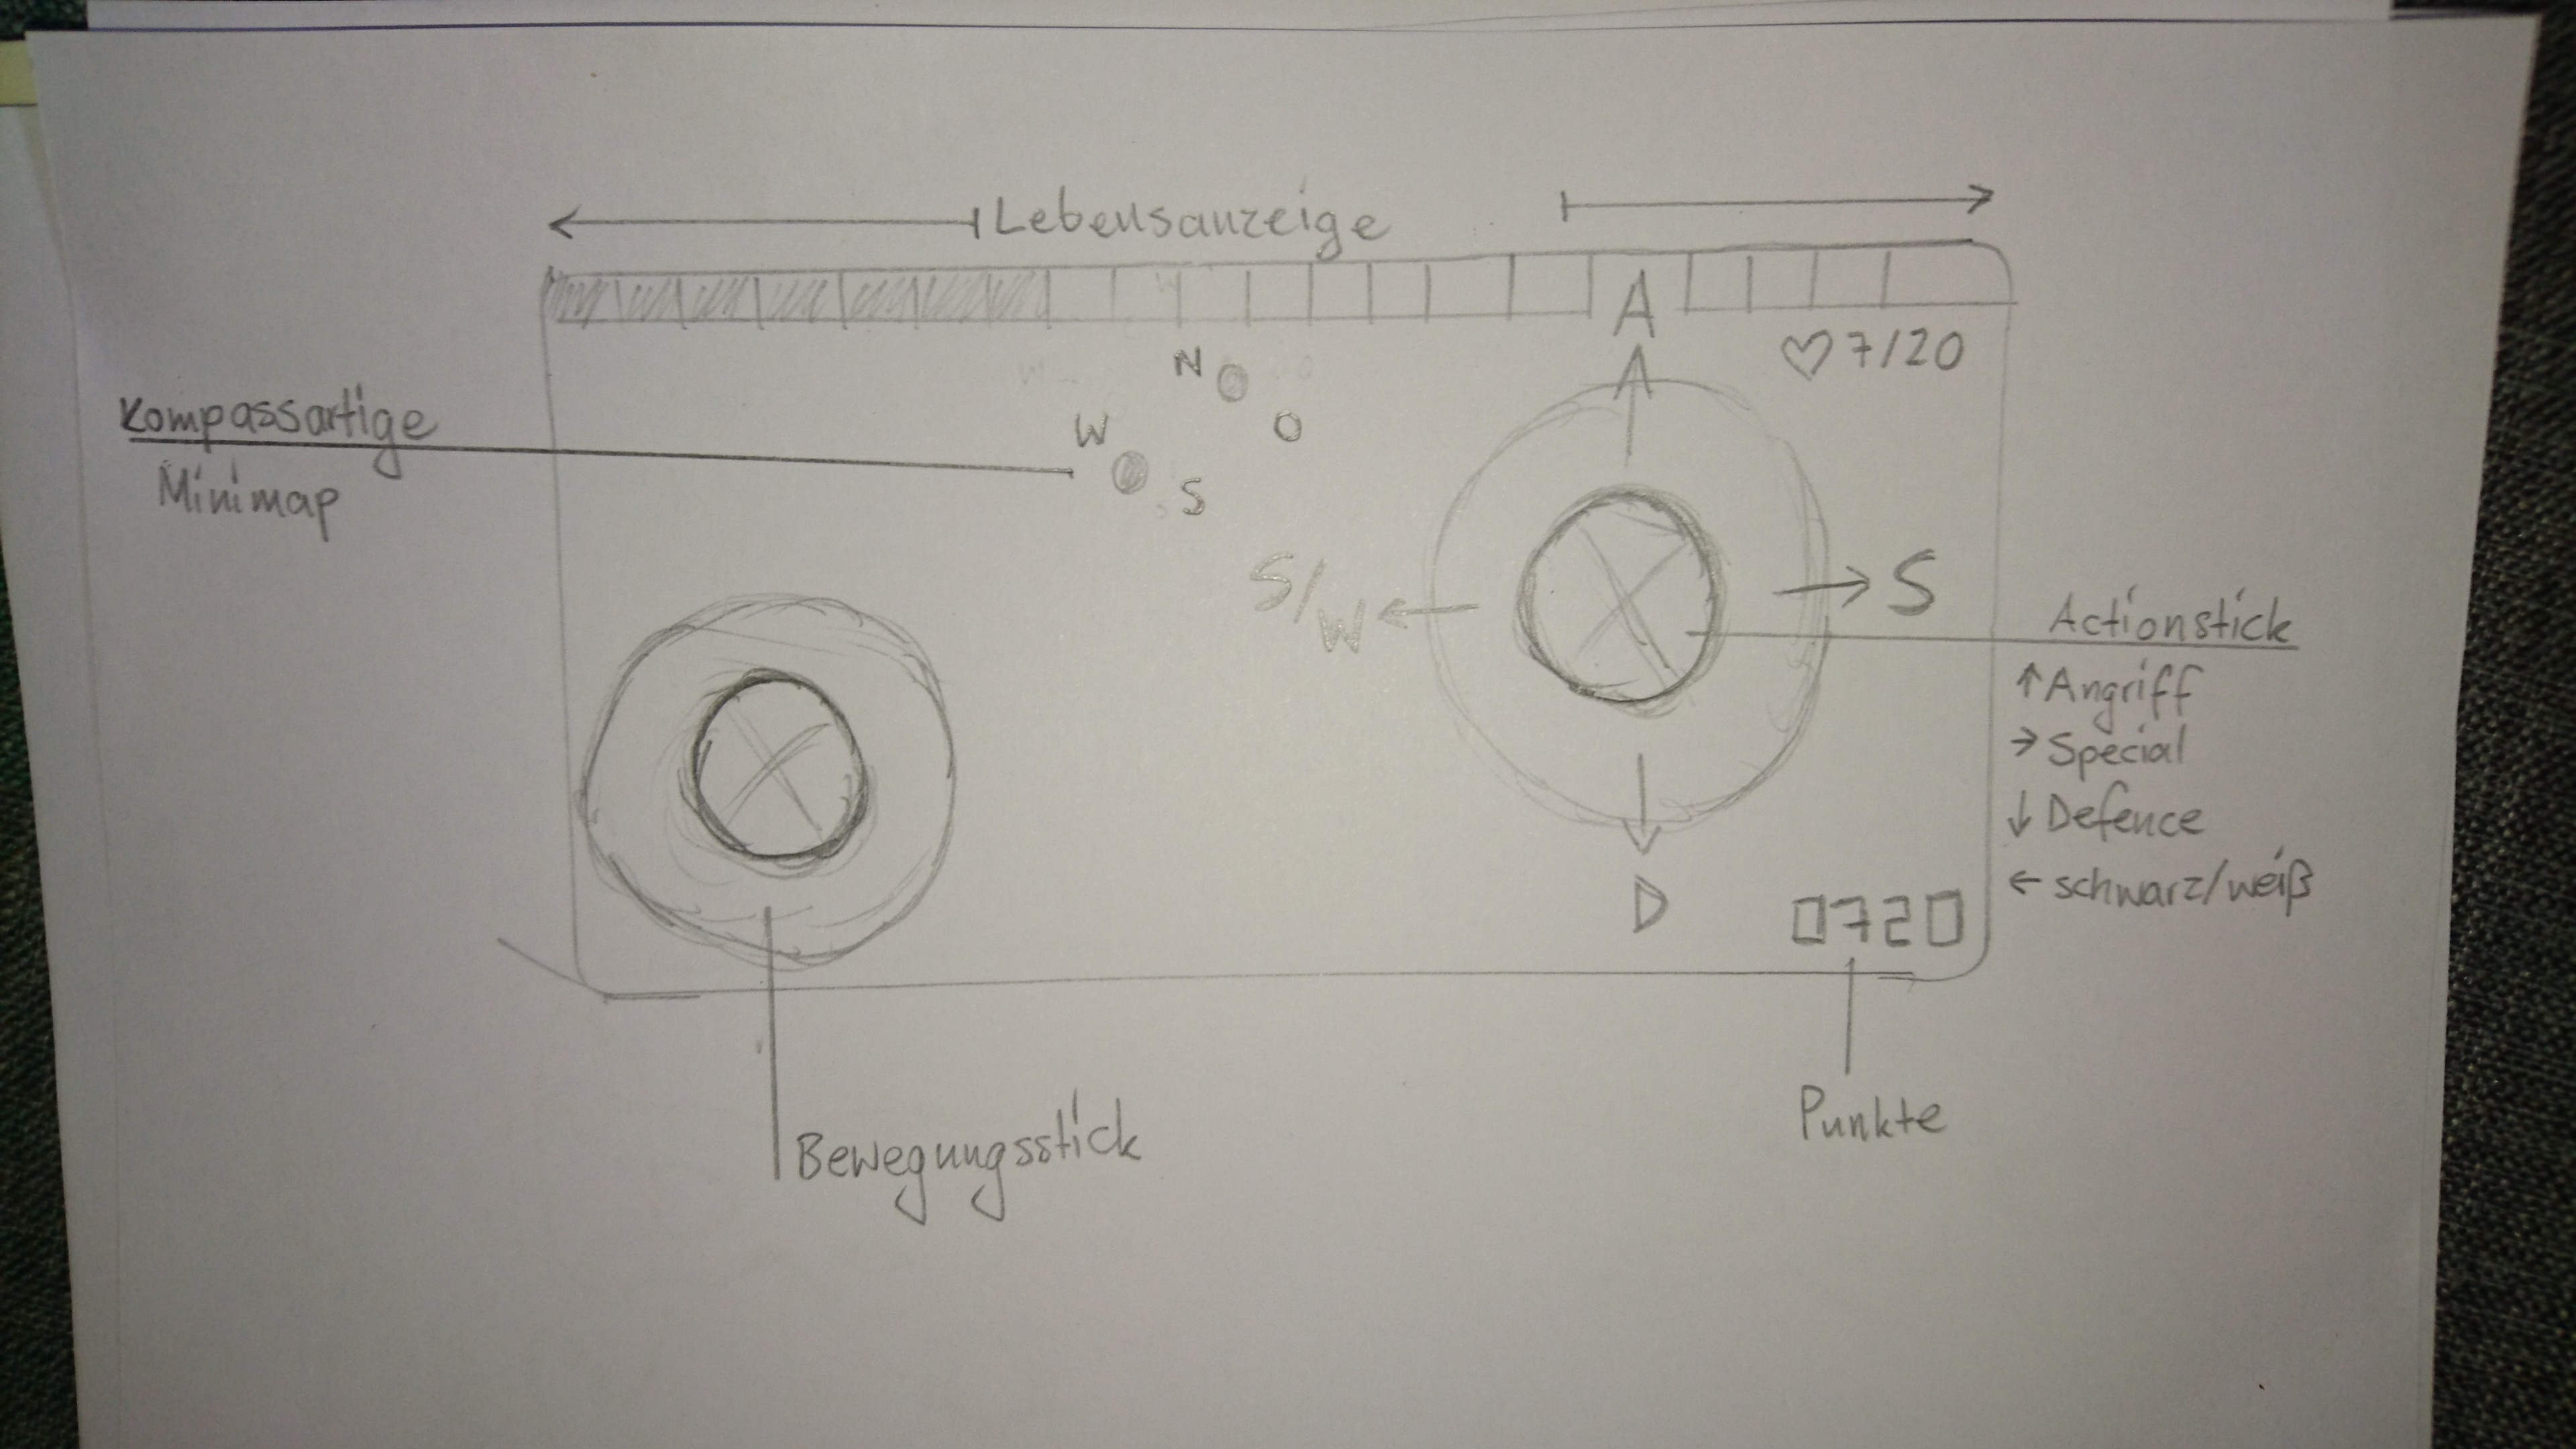 Lebensanzeige
A
7/20
N
W
O
S
Kompassartige
Minimap
S/W
S
D
Actionstick
↑ Angriff
→ Special
↓ Defence
← schwarz/weiß
0720
Punkte
Bewegungsstick